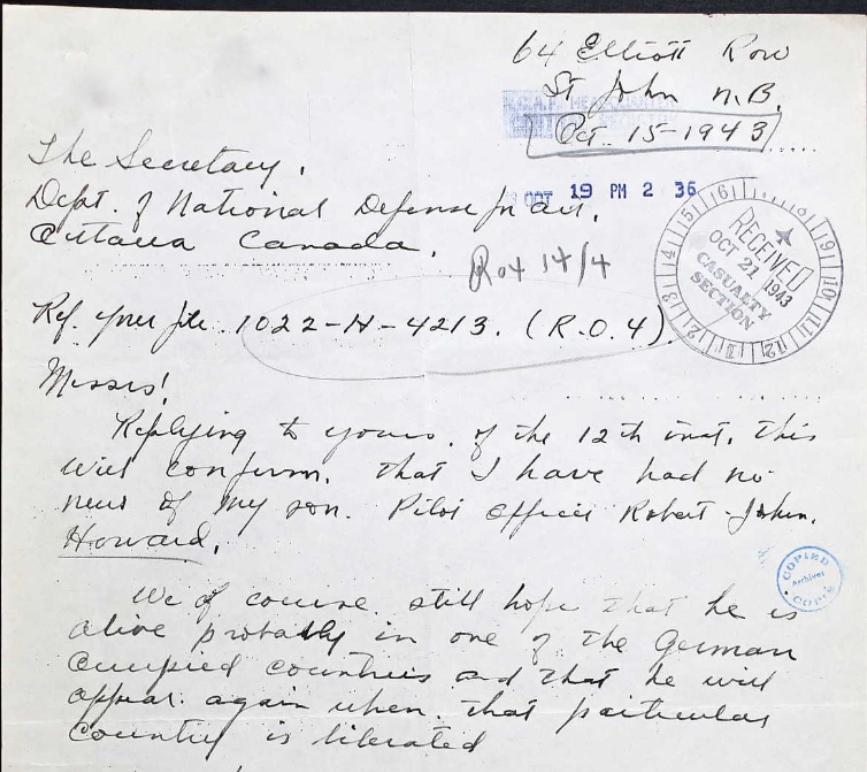 64 Elliott Row
St John N.B.
R.C.A.F. HEADQUARTERS
CENTRAL REGISTRY
Oct. 15-1943
The Secretary.
Dept. of National Defense for air.
OCT 19 PM 2 36
Ottawa Canada.
RO4 14/4
RECEIVED
OCT 21 1943
CASUALTY
SECTION
Ref. your file 1022-H-4213. (R.O.4).
Messrs!
Replying to yours. of the 12th inst. this
will confirm. that I have had no
news of my son. Pilot Officer Robert John.
Howard.
COPIED
Archives
COPIÉ
We of course. still hope that he is
alive probably in one of the German
occupied countries and that he will
appear. again when. that particular
country is liberated